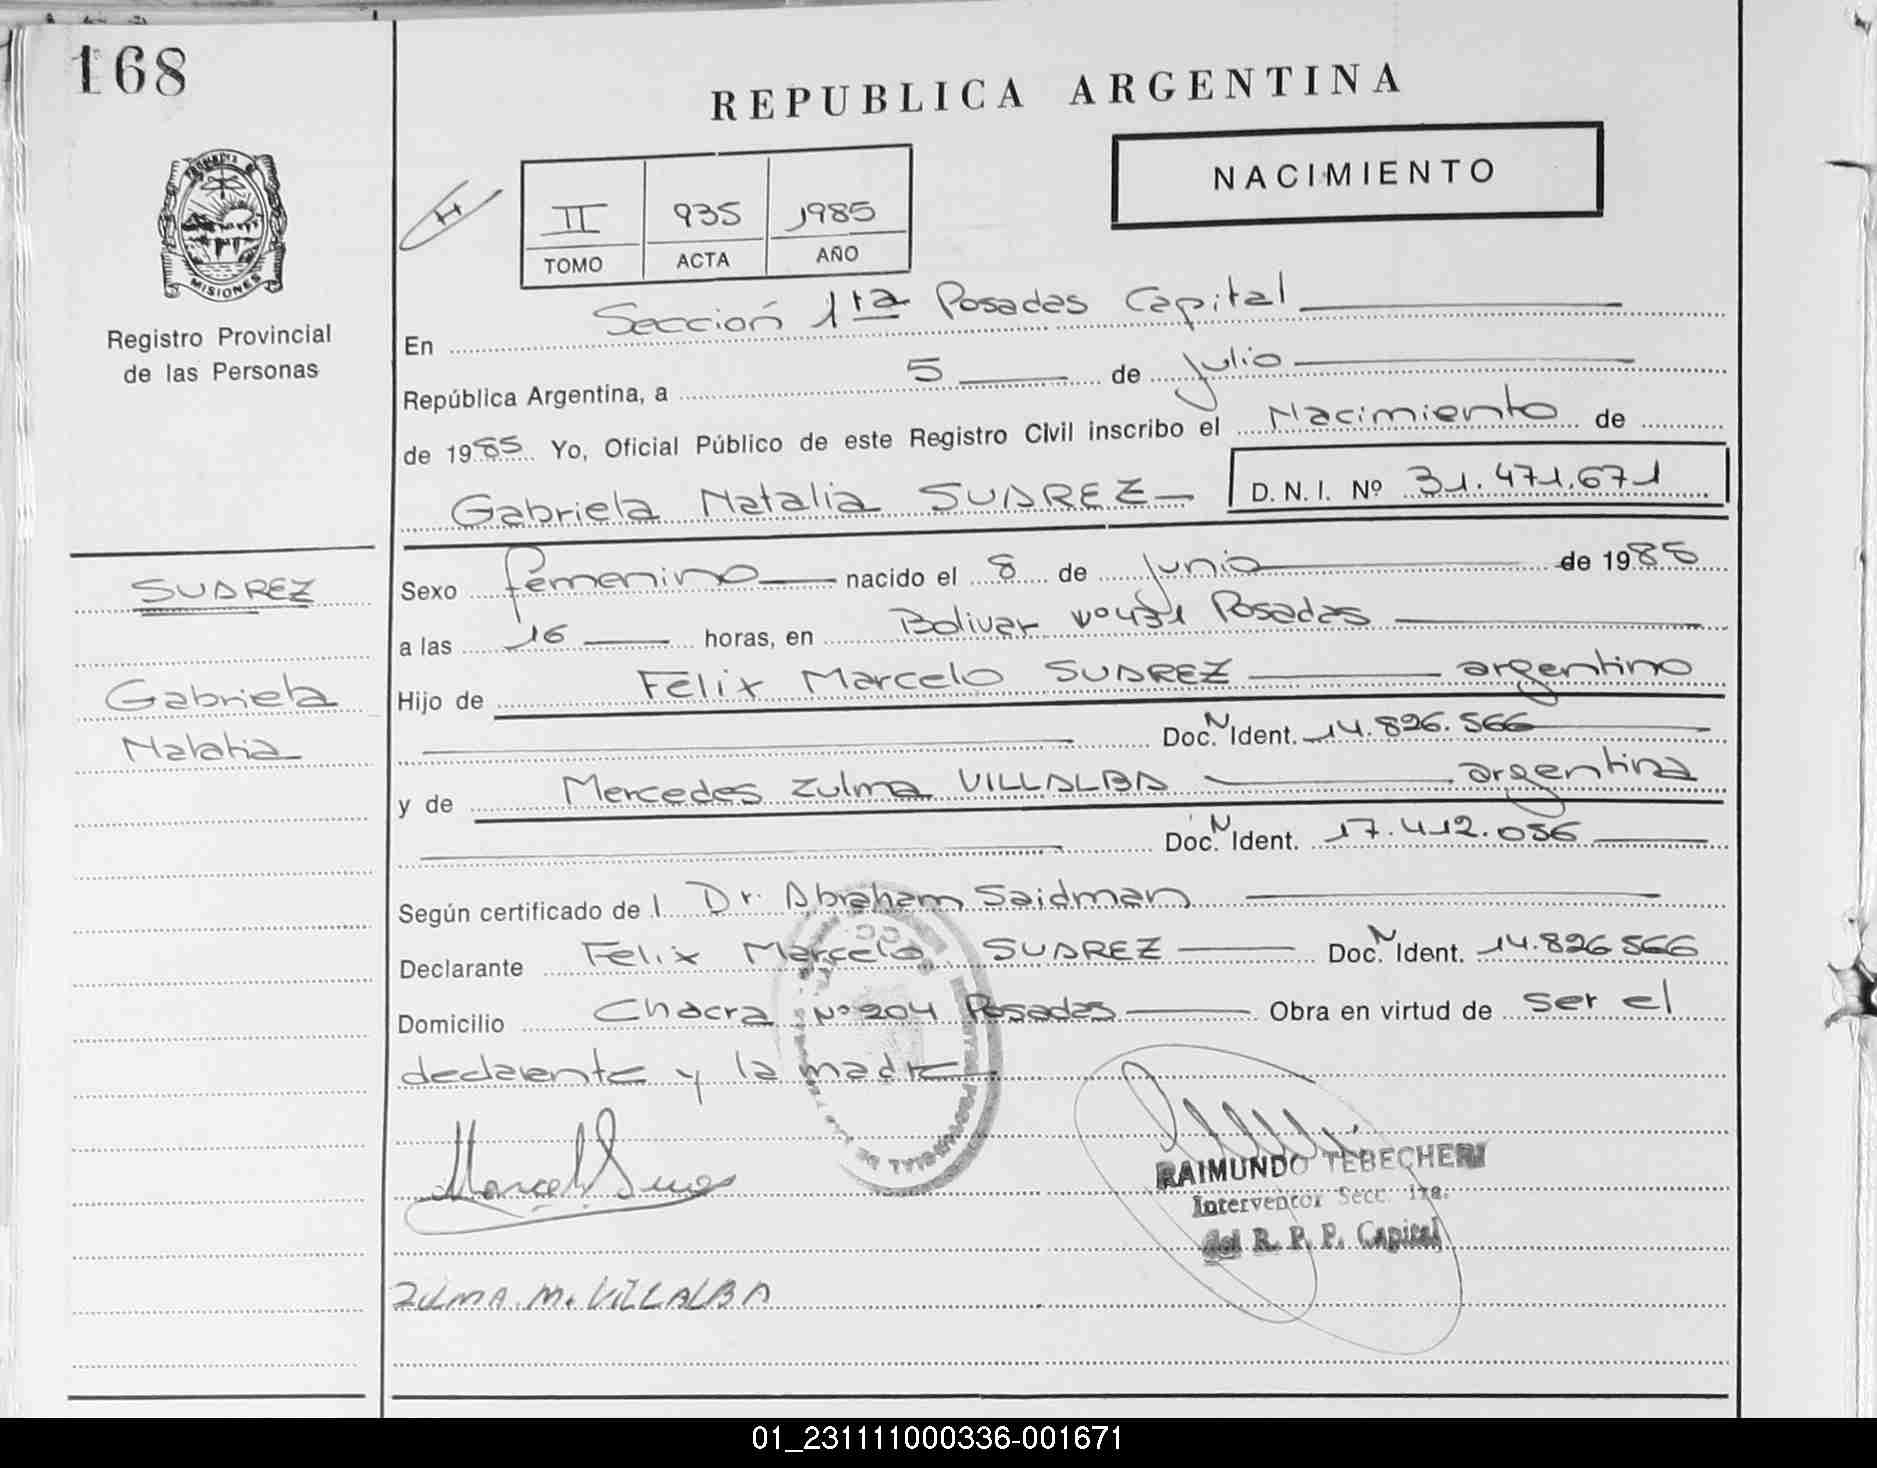 168
REPUBLICA ARGENTINA
NACIMIENTO
II 935 1985
TOMO ACTA AÑO
PROVINCIA DE
MISIONES
Registro Provincial
de las Personas
En Sección 1ra Posadas Capital
República Argentina, a 5 de Julio
de 1985 Yo, Oficial Público de este Registro Civil inscribo el Nacimiento de
Gabriela Natalia SUAREZ D. N. I. Nº 31.471.671
SUAREZ
Gabriela
Natalia
Sexo femenino nacido el 8 de Junio de 1985
a las 16 horas, en Bolivar Nº 431 Posadas
Hijo de Felix Marcelo SUAREZ argentino
Doc. N Ident. 14.826.566
y de Mercedes Zulma VILLALBA argentina
Doc. N Ident. 17.412.056
Según certificado del Dr. Abraham Saidman
Declarante Felix Marcelo SUAREZ Doc. N Ident. 14.826.566
Domicilio Chacra Nº 204 Posadas Obra en virtud de ser el
declarente y la madre
Marcelo Suarez
RAIMUNDO TEBECHERI
Interventor Secc. 1ra.
del R. P. P. Capital
ZULMA. M. VILLALBA
01_231111000336-001671